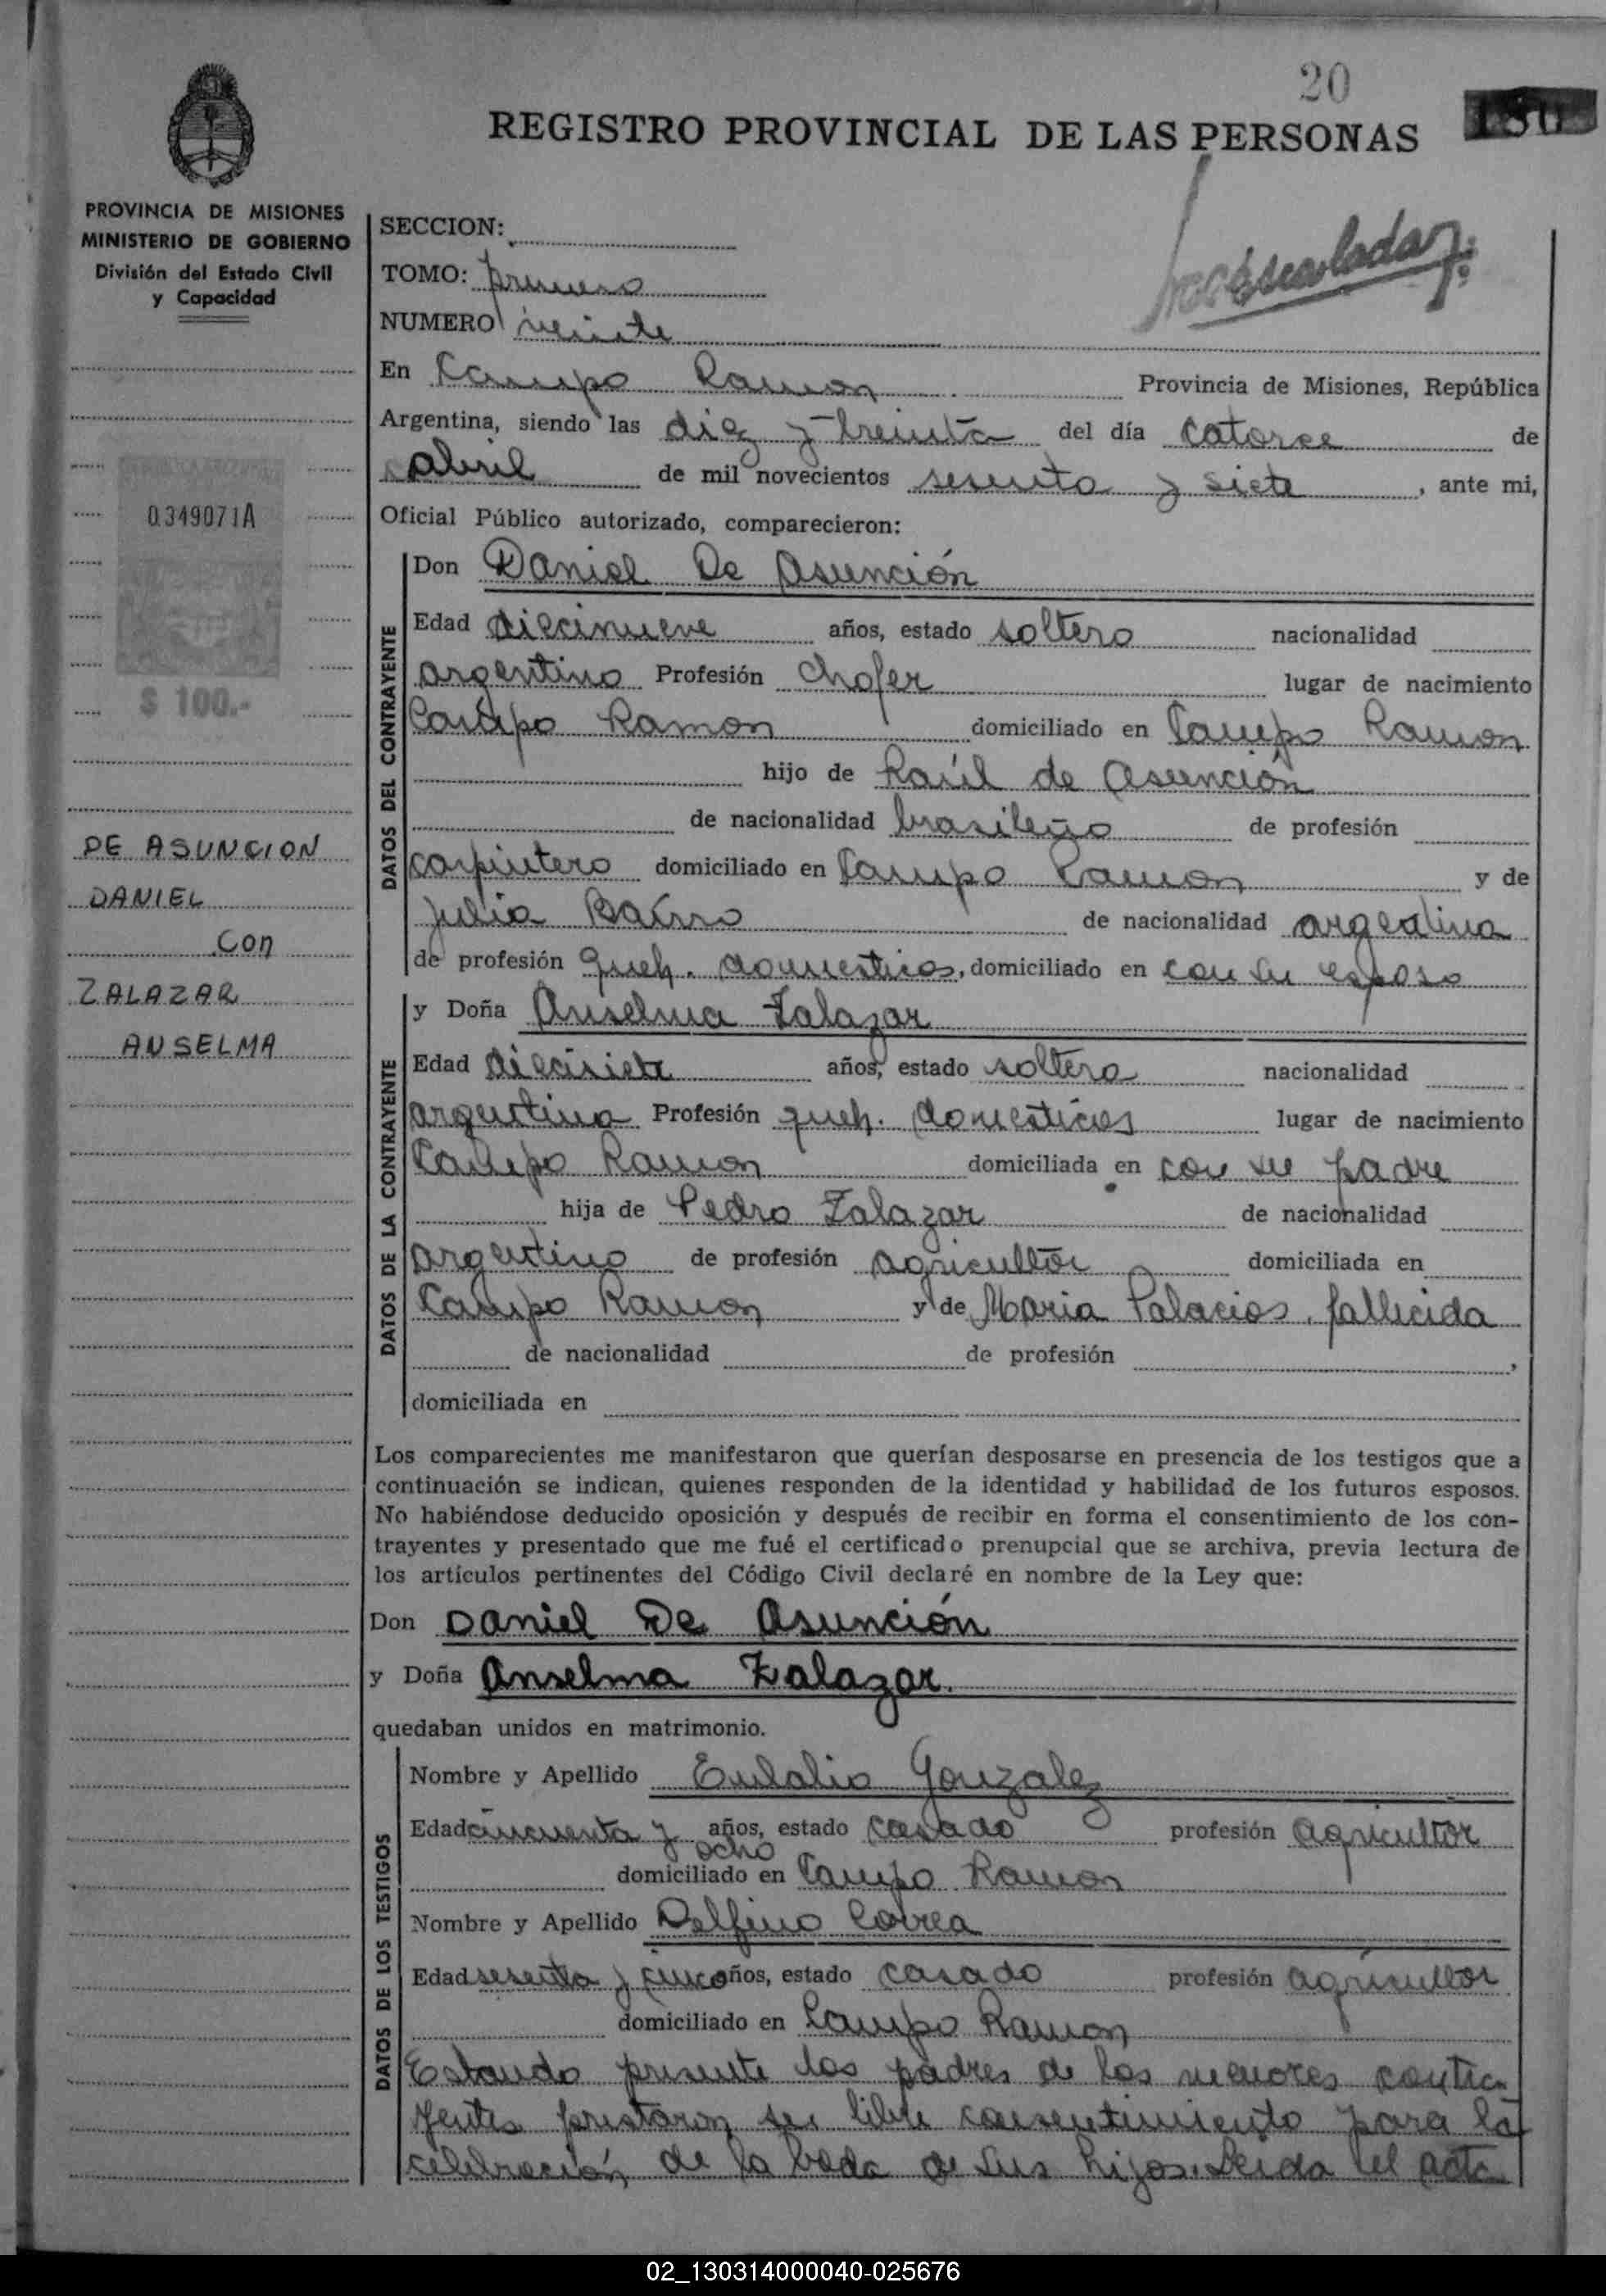 20
REGISTRO PROVINCIAL DE LAS PERSONAS
PROVINCIA DE MISIONES
MINISTERIO DE GOBIERNO
División del Estado Civil
y Capacidad
0349071A
$ 100.-
DE ASUNCION
DANIEL
Con
ZALAZAR
ANSELMA
SECCION:
TOMO: primero
NUMERO veinte
En Campo Ramon Provincia de Misiones, República
Argentina, siendo las diez y treinta del día catorce de
abril de mil novecientos sesenta y siete, ante mi,
Oficial Público autorizado, comparecieron:
DATOS DEL CONTRAYENTE
Don Daniel De Asunción
Edad diecinueve años, estado soltero nacionalidad
argentino Profesión Chofer lugar de nacimiento
Campo Ramon domiciliado en Campo Ramon
hijo de Raúl de Asunción
de nacionalidad brasileño de profesión
carpintero domiciliado en Campo Ramon y de
Julia de nacionalidad argentina
de profesión queh. domesticos, domiciliado en con su esposo
DATOS DE LA CONTRAYENTE
y Doña Anselma Zalazar
Edad diecisiete años, estado soltera nacionalidad
argentina Profesión queh. domesticos lugar de nacimiento
Campo Ramon domiciliada en con su padre
hija de Pedro Zalazar de nacionalidad
argentino de profesión agricultor domiciliada en
Campo Ramon y de Maria Palacios, fallecida
de nacionalidad de profesión ,
domiciliada en
Los comparecientes me manifestaron que querían desposarse en presencia de los testigos que a
continuación se indican, quienes responden de la identidad y habilidad de los futuros esposos.
No habiéndose deducido oposición y después de recibir en forma el consentimiento de los con-
trayentes y presentado que me fué el certificado prenupcial que se archiva, previa lectura de
los artículos pertinentes del Código Civil declaré en nombre de la Ley que:
Don Daniel De Asunción
y Doña Anselma Zalazar.
quedaban unidos en matrimonio.
DATOS DE LOS TESTIGOS
Nombre y Apellido Eulalio Gonzalez
Edad cincuenta y ocho años, estado casado profesión agricultor
domiciliado en Campo Ramon
Nombre y Apellido Delfino Correa
Edad sesenta y cinco años, estado casado profesión agricultor
domiciliado en Campo Ramon
Estando presente los padres de los menores contra-
yentes prestaron su libre consentimiento para la
celebración de la boda de sus hijos. Leida el acta
02_130314000040-025676